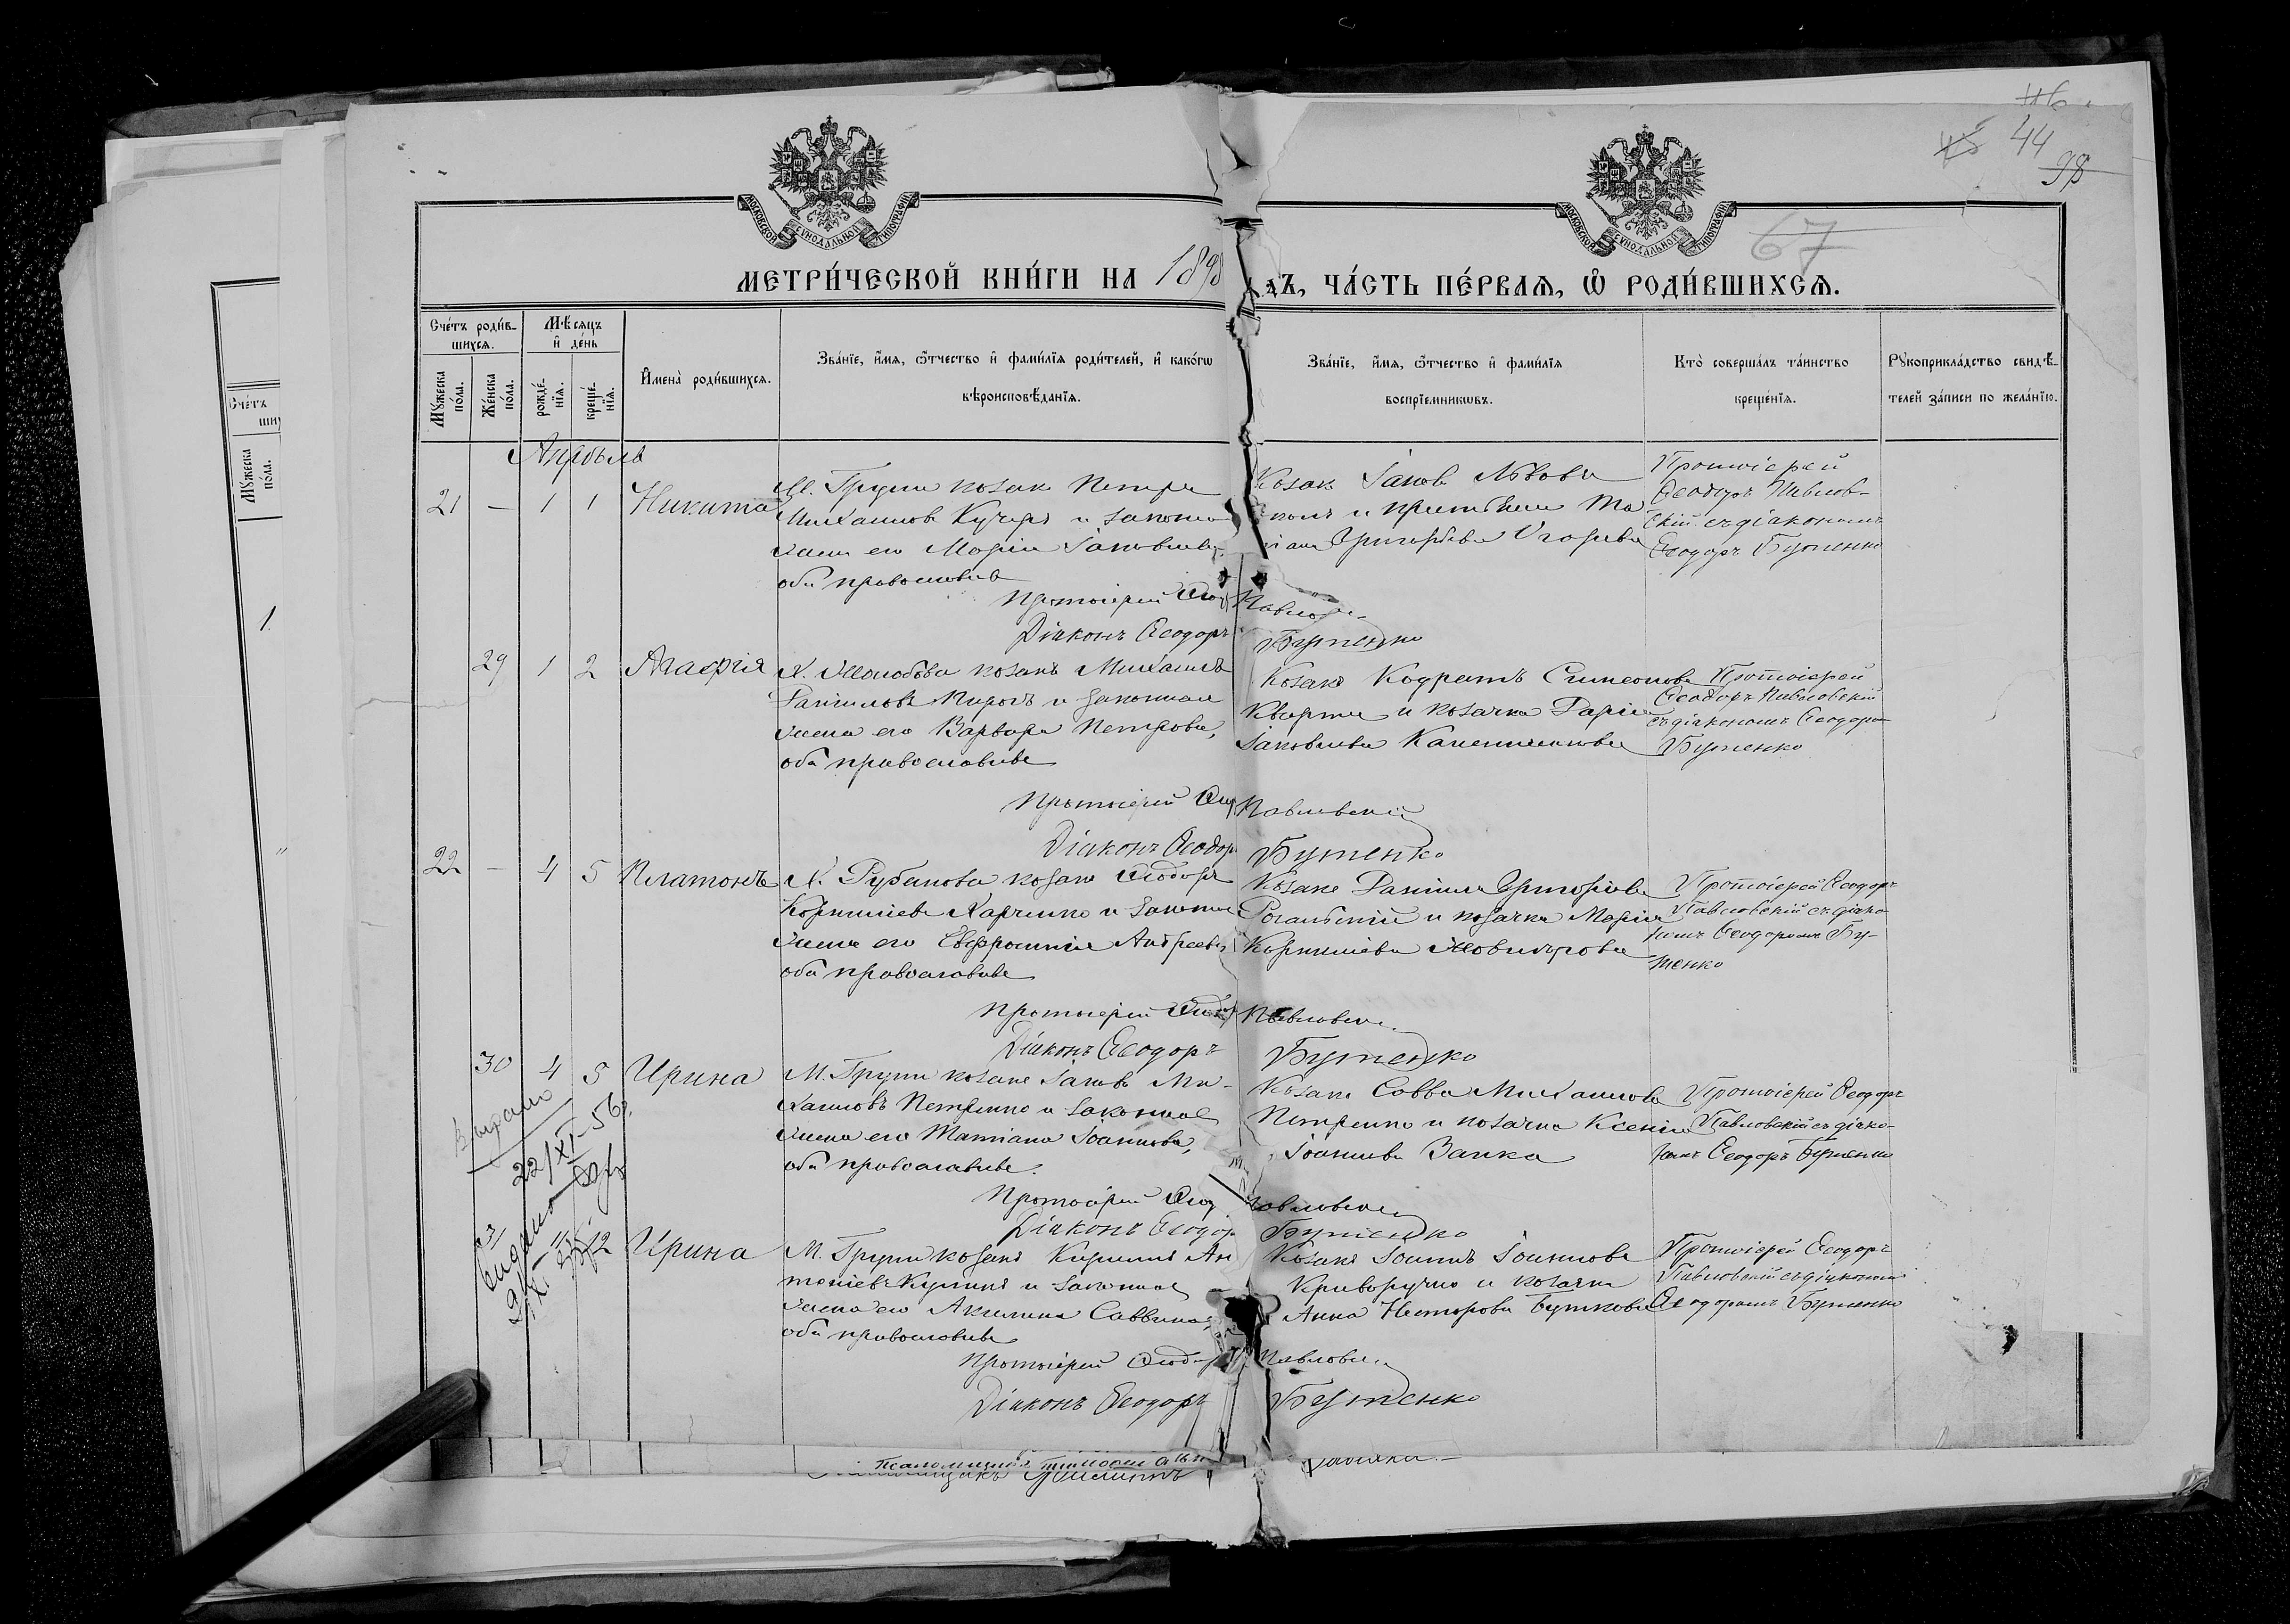 44
98
67
МОСКОВСКОЙ СѴНОДАЛЬНОЙ ТИПОГРАФІИ
МОСКОВСКОЙ СѴНОДАЛЬНОЙ ТИПОГРАФІИ
МЕТРИ́ЧЕСКОЙ КНИ́ГИ НА 1898
ДЪ, ЧА́СТЬ ПЕ́РВАѦ, Ѡ҆ РОДИ́ВШИХСѦ.
Сче́тъ роди́в-
шихсѧ.
Мѣ́сѧцъ
и҆ де́нь
Мꙋ́жеска
по́ла.
Же́нска
по́ла.
рожде́-
нїѧ.
креще́-
нїѧ.
И҆мена̀ роди́вшихсѧ.
Зва́нїе, и҆́мѧ, ѻ҆́тчество и҆ фами́лїѧ роди́телей, и҆ како́гѡ
вѣроисповѣ́данїѧ.
Зва́нїе, и҆́мѧ, ѻ҆́тчество и҆ фами́лїѧ
воспрїе́мникѡвъ.
Кто̀ соверша́лъ та́инство
креще́нїѧ.
Рꙋкоприкла́дство свидѣ́-
телей за́писи по жела́нїю.
Апрѣль
21 – 1 1 Никита
М. Груни козак Петръ
Михаилов Кучеръ и законная
жена его Марія Іаковлева,
оба православные
Козак Іаков Львовъ
Григорьева
Протоіерей
Ѳеодоръ Павлов-
скій съ діакономъ
Ѳеодоръ Бутенко
Протоіерей Ѳеод Павловскій
Діаконъ Ѳеодоръ Бутенко
29 1 2 Агафія
Х. козакъ Михаилъ
Даніиловъ и законная
жена его Варвара Петрова,
оба православные
Козакъ Кодратъ Симеоновъ
Кварта и козачка Дарія
Іаковлева
Протоіерей
Ѳеодоръ Павловскій
съ діакономъ Ѳеодоромъ
Бутенко
Протоіерей Ѳеод Павловскій
Діаконъ Ѳеодоръ Бутенко
22 – 4 5 Платонъ
Х. Рубанова козак Ѳеодоръ
Корниліевъ Харченко и законная
жена его Евфросинія Андреева
оба православные
Козакъ Даніилъ Григоріевъ
и козачка Марія
Корниліева
Протоіерей Ѳеодоръ
Павловскій съ діако-
номъ Ѳеодоромъ Бу-
тенко
Протоіерей Ѳеод Павловскій
Діаконъ Ѳеодоръ Бутенко
30 4 5 Ирина
М. Груни козакъ Іаковъ Ми-
хаиловъ Петренко и законная
жена его Татіана Іоаннова,
оба православные
Козакъ Савва Михаиловъ
Петренко и козачка Ксенія
Іоаннова Заика
Протоіерей Ѳеодоръ
Павловскій съ діако-
номъ Ѳеодоръ Бутенко
Выдано
22/XI-56г.
Протоіерей Ѳеод Павловскій
Діаконъ Ѳеодор Бутенко
31 11 12 Ирина
Выдано
М. Груни козакъ Кириллъ Ан
тоніевъ и законная
жена его Акилина Саввина,
оба православные
Козакъ Іоаннъ Іоанновъ
Криворучко и козачка
Анна Несторова Буткова
Протоіерей Ѳеодоръ
Павловскій съ діакономъ
Ѳеодоромъ Бутенко
Протоіерей Ѳеодоръ Павловскій
Діаконъ Ѳеодоръ Бутенко